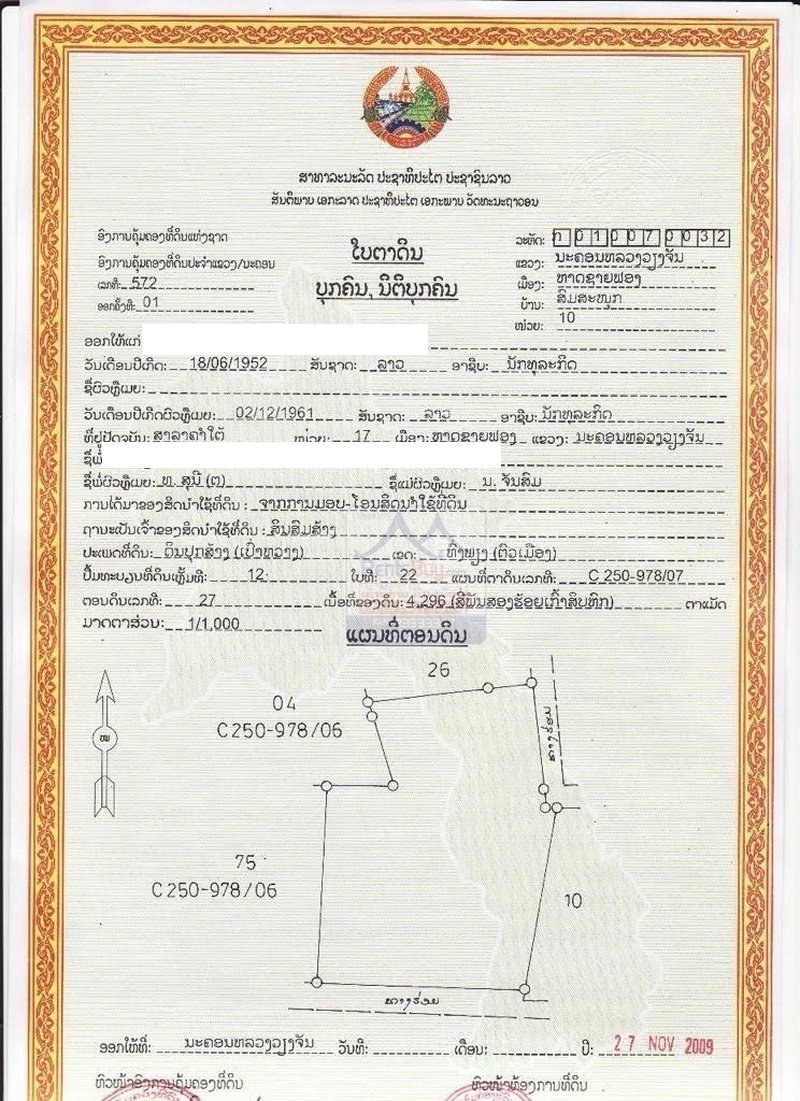 ສາທາລະນະລັດ ປະຊາທິປະໄຕ ປະຊາຊົນລາວ
ສັນຕິພາບ ເອກະລາດ ປະຊາທິປະໄຕ ເອກະພາບ ວັດທະນະຖາວອນ
ອົງການຄຸ້ມຄອງທີ່ດິນແຫ່ງຊາດ
ອົງການຄຸ້ມຄອງທີ່ດິນປະຈຳແຂວງ/ນະຄອນ
ເລກທີ: 572
ອອກຄັ້ງທີ: 01
ໃບຕາດິນ
ບຸກຄົນ, ນິຕິບຸກຄົນ
ລະຫັດ: ກ 01007 0032
ແຂວງ: ນະຄອນຫລວງວຽງຈັນ
ເມືອງ: ຫາດຊາຍຟອງ
ບ້ານ: ສົມສະໜຸກ
ໜ່ວຍ: 10
ອອກໃຫ້ແກ່
ວັນເດືອນປີເກີດ: 18/06/1952 ສັນຊາດ: ລາວ ອາຊີບ: ນັກທຸລະກິດ
ຊື່ຜົວຫຼືເມຍ:
ວັນເດືອນປີເກີດຜົວຫຼືເມຍ: 02/12/1961 ສັນຊາດ: ລາວ ອາຊີບ: ນັກທຸລະກິດ
ທີ່ຢູ່ປັດຈຸບັນ: ສາລາຄຳໃຕ້ ໜ່ວຍ: 17 ເມືອງ: ຫາດຊາຍຟອງ ແຂວງ: ນະຄອນຫລວງວຽງຈັນ
ຊື່ພໍ່
ຊື່ພໍ່ຜົວຫຼືເມຍ: ທ. ສຸນີ (ຕ) ຊື່ແມ່ຜົວຫຼືເມຍ: ນ. ຈັນສົມ
ການໄດ້ມາຂອງສິດນຳໃຊ້ທີ່ດິນ : ຈາກການມອບ-ໂອນສິດນຳໃຊ້ທີ່ດິນ
ຖານະເປັນເຈົ້າຂອງສິດນຳໃຊ້ທີ່ດິນ : ສິນສົມສ້າງ
ປະເພດທີ່ດິນ: ດິນປຸກສ້າງ (ເປົ່າຫວາງ) ເຂດ: ທົ່ງພຽງ (ຕົວເມືອງ)
ປຶ້ມທະບຽນທີ່ດິນເຫຼັ້ມທີ: 12 ໃບທີ: 22 ແຜນທີ່ຕາດິນເລກທີ: C 250-978/07
ຕອນດິນເລກທີ: 27 ເນື້ອທີ່ຂອງດິນ: 4,296 (ສີ່ພັນສອງຮ້ອຍເກົ້າສິບຫົກ) ຕາແມັດ
ມາດຕາສ່ວນ: 1/1,000
ແຜນທີ່ຕອນດິນ
26
04
C 250-978/06
ທາງຮ່ອມ
ໜ
75
C 250-978/06
10
ທາງຮ່ອມ
ອອກໃຫ້ທີ່: ນະຄອນຫລວງວຽງຈັນ ວັນທີ: ເດືອນ: ປີ: 27 NOV 2009
ຫົວໜ້າອົງການຄຸ້ມຄອງທີ່ດິນ ຫົວໜ້າຫ້ອງການທີ່ດິນ